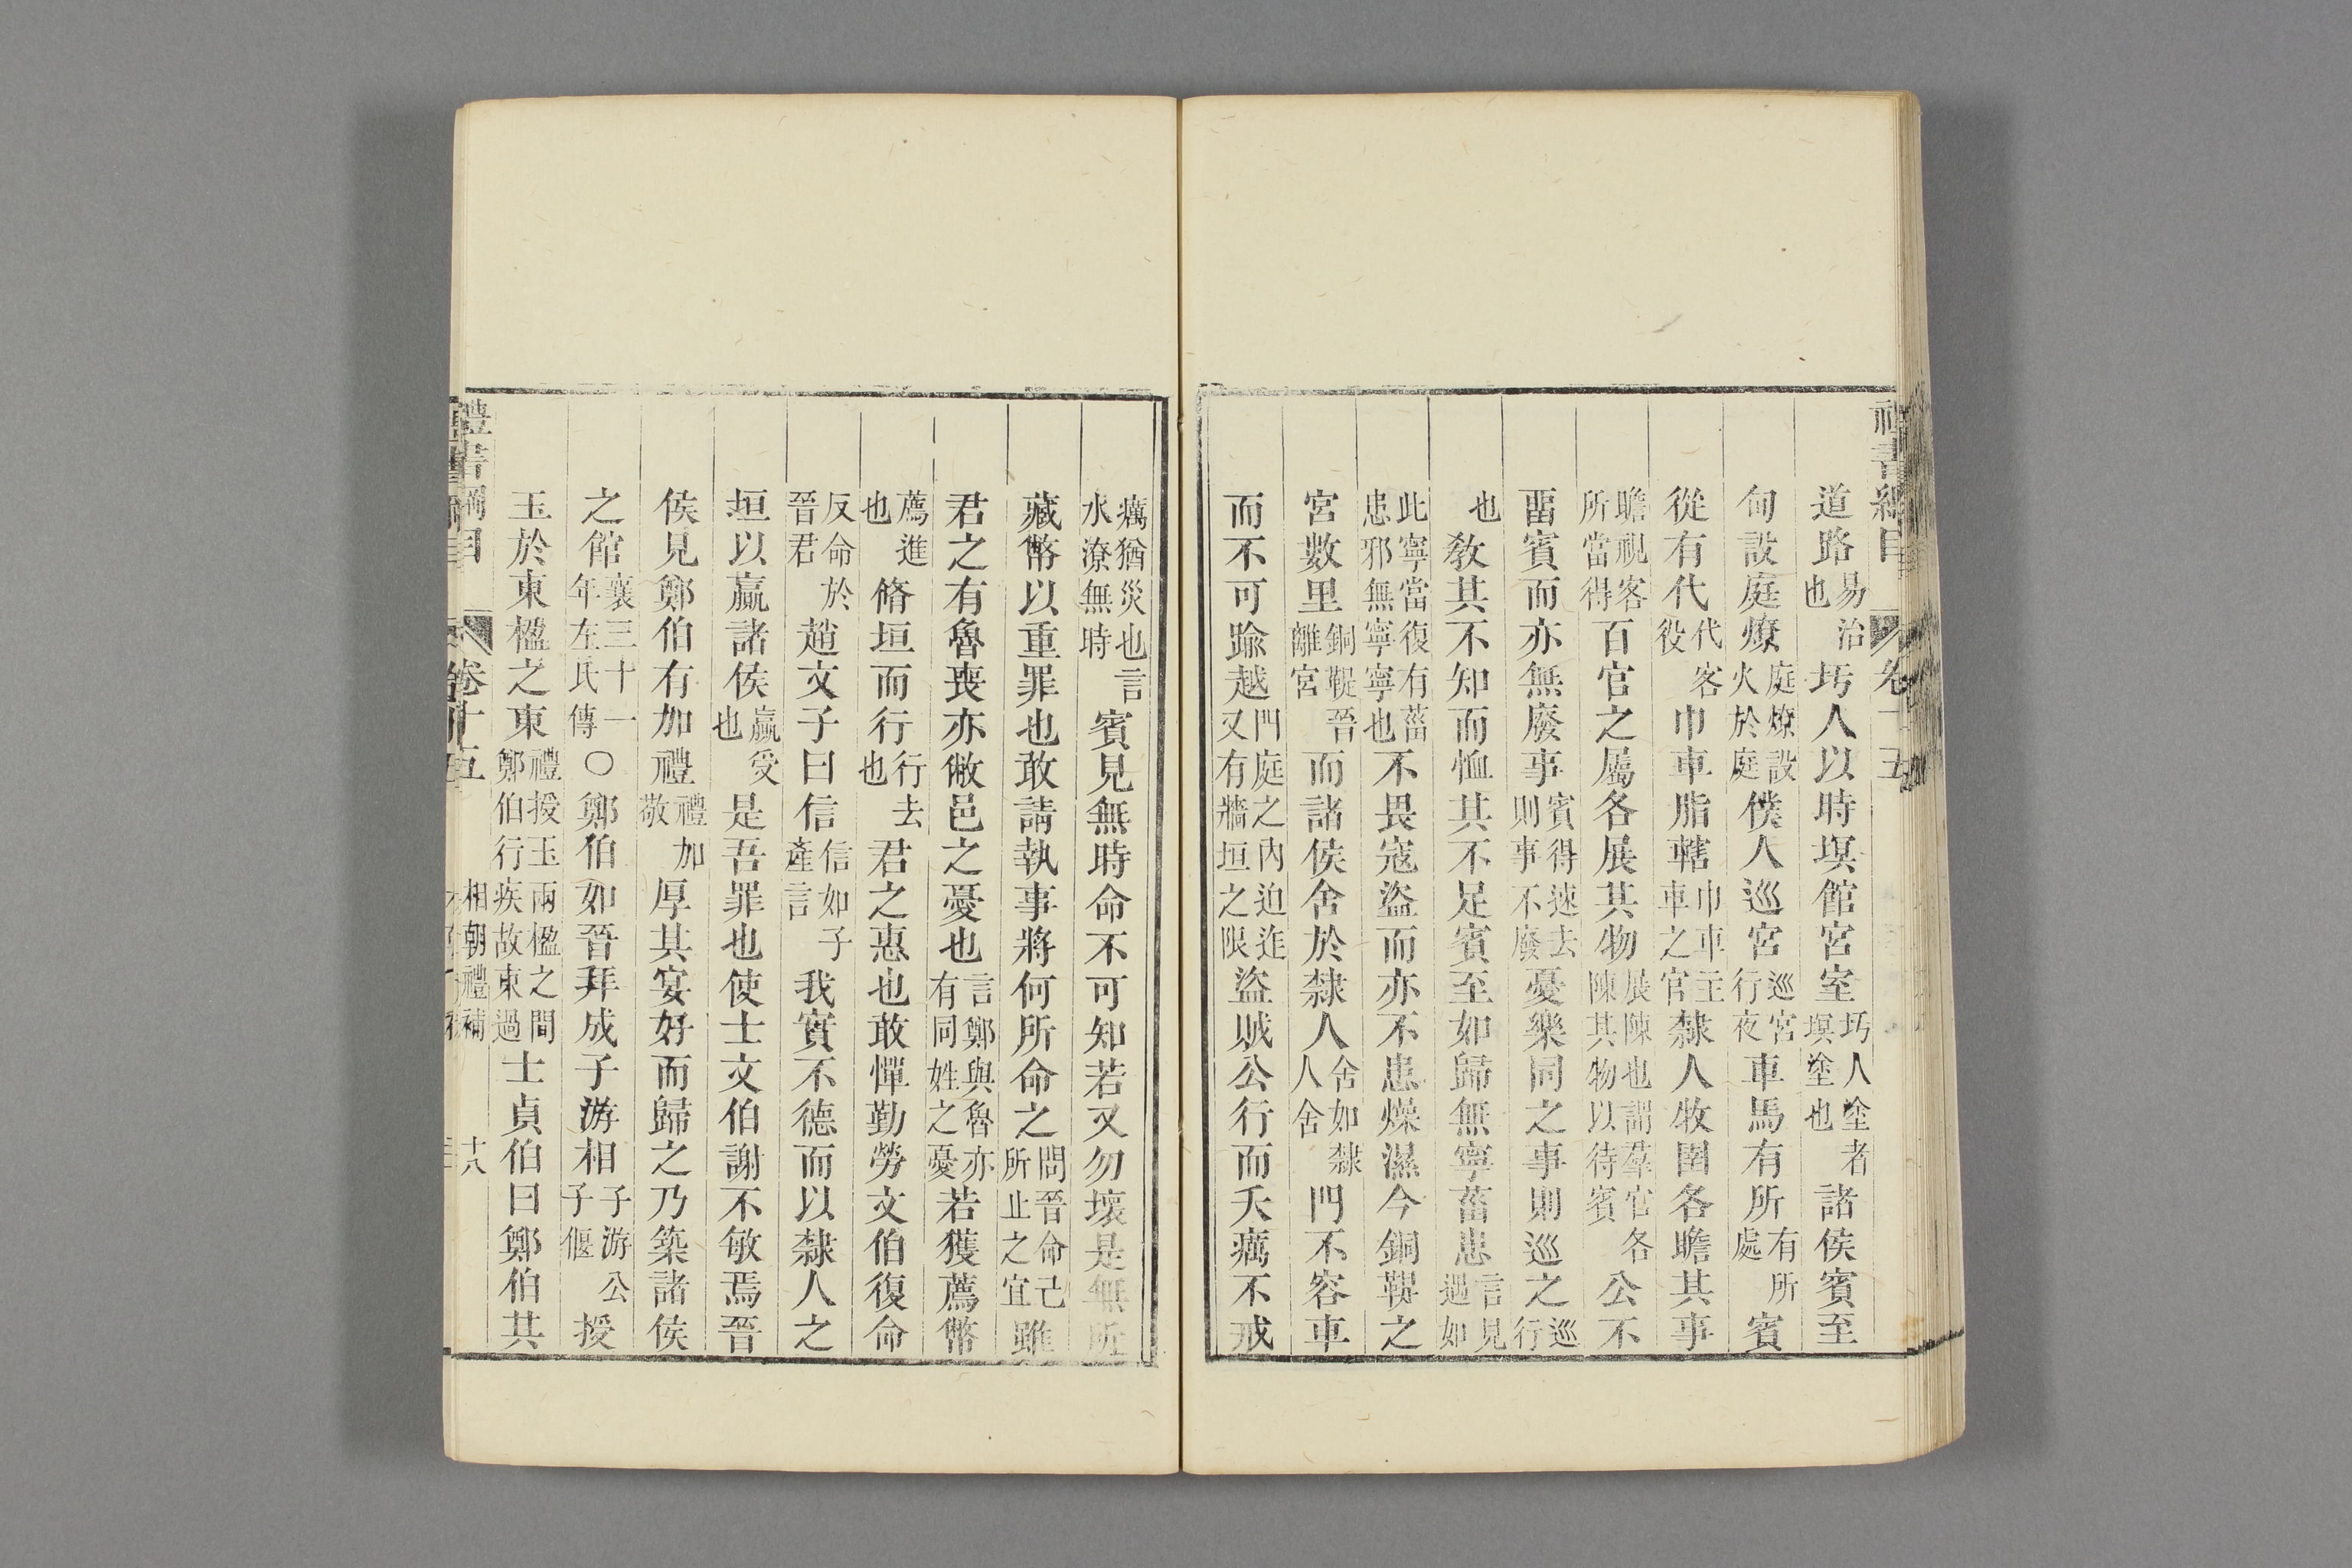 禮書綱目 卷十五
道路易治也圬人以時塓館宮室圬人塗者塓塗也諸侯賓至
甸設庭燎庭燎設火於庭僕人巡宮巡宮行夜車馬有所有所處賓
從有代代客役巾車脂轄巾車主車之官隸人牧圉各瞻其事
瞻視客所當得百官之屬各展其物展陳也謂羣官各陳其物以待賓公不
畱賓而亦無廢事賓得速去則事不廢憂樂同之事則巡之巡行
也教其不知而恤其不足賓至如歸無寧菑患言見遇如
此寧當復有菑患邪無寧寧也不畏寇盜而亦不患燥濕今銅鞮之
宮數里銅鞮晉離宮而諸侯舍於隸人舍如隸人舍門不容車
而不可踰越門庭之內迫迮又有牆垣之限盜賊公行而夭癘不戒
癘猶災也言水潦無時賓見無時命不可知若又勿壞是無所
藏幣以重罪也敢請執事將何所命之問晉命己所止之宜雖
君之有魯喪亦敝邑之憂也言鄭與魯亦有同姓之憂若獲薦幣
薦進也脩垣而行行去也君之惠也敢憚勤勞文伯復命
反命於晉君趙文子曰信信如子產言我實不德而以隸人之
垣以贏諸侯贏受也是吾罪也使士文伯謝不敏焉晉
侯見鄭伯有加禮禮加敬厚其宴好而歸之乃築諸侯
之館襄三十一年左氏傳○鄭伯如晉拜成子游相子游公子偃授
玉於東楹之東禮授玉兩楹之間鄭伯行疾故東過士貞伯曰鄭伯其
禮書綱目 卷十五 相朝禮補 十八